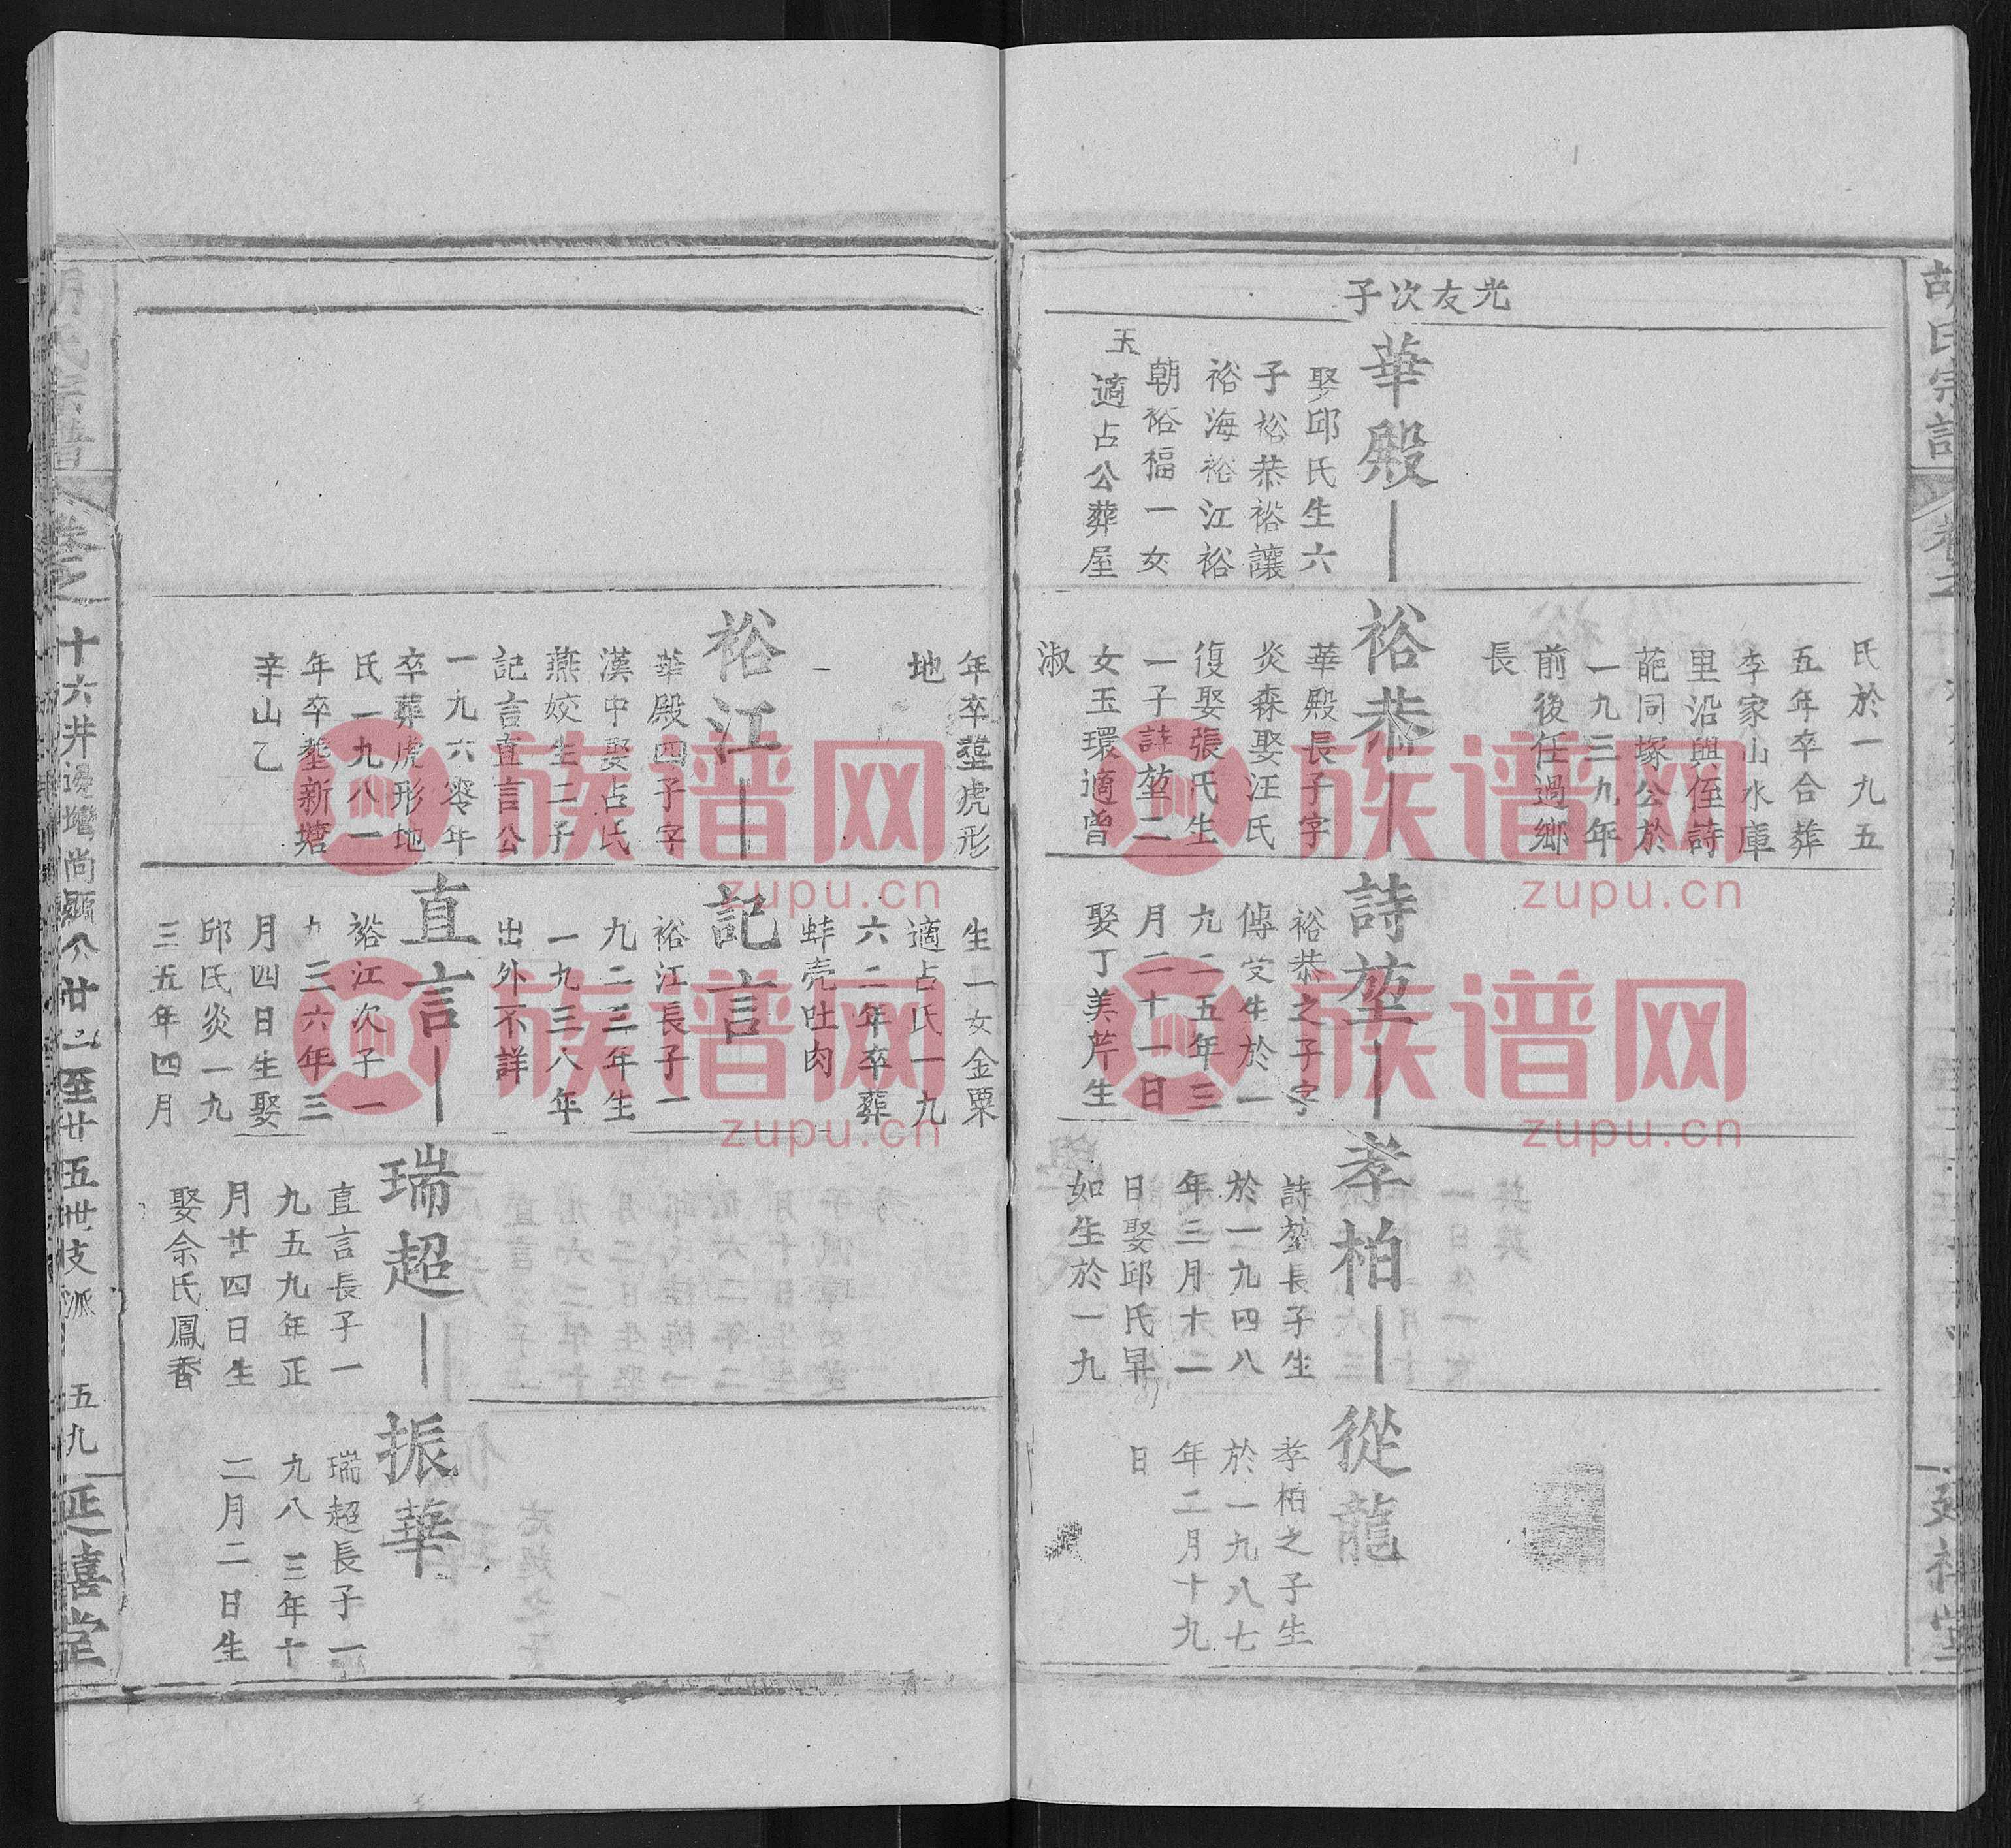 胡氏宗譜
光友次子
華殿
娶邱氏生六
子裕恭裕讓
裕海裕江裕
朝裕福一女
玉
適占公葬屋
氏於一九五
五年卒合葬
李家山水庫
里沿與侄詩
同塚公於
一九三九年
前後任過鄉
長
裕恭
華殿長子字
炎森娶汪氏
復娶張氏生
一子詩堃二
女玉環適曾
淑
詩堃
裕恭之子字
傳文生於一
九二五年三
月二十一日
娶丁美芹生
孝柏
詩堃長子生
於一九四八
年三月十二
日娶邱氏早
如生於一九
從龍
孝柏之子生
於一九八七
年二月十九
日
年卒塟虎形
地
一
裕江
華殿四子字
漢中娶占氏
燕姣生二子
記言直言公
一九六零年
卒葬虎形地
氏一九八一
年卒塟新塘
辛山乙
生一女金粟
適占氏一九
六二年卒葬
蚌壳吐肉
記言
裕江長子一
九二三年生
一九三八年
出外不詳
直言
裕江次子一
九三六年三
月四日生娶
邱氏炎一九
三五年四月
瑞超
直言長子一
九五九年正
月廿四日生
娶余氏鳳香
振華
瑞超長子一
九八三年十
二月二日生
胡氏宗譜
卷之
十六井邊塆尚顯公廿一至廿五世支派
五九
延禧堂
族谱网
zupu.cn
族谱网
zupu.cn
族谱网
zupu.cn
族谱网
zupu.cn